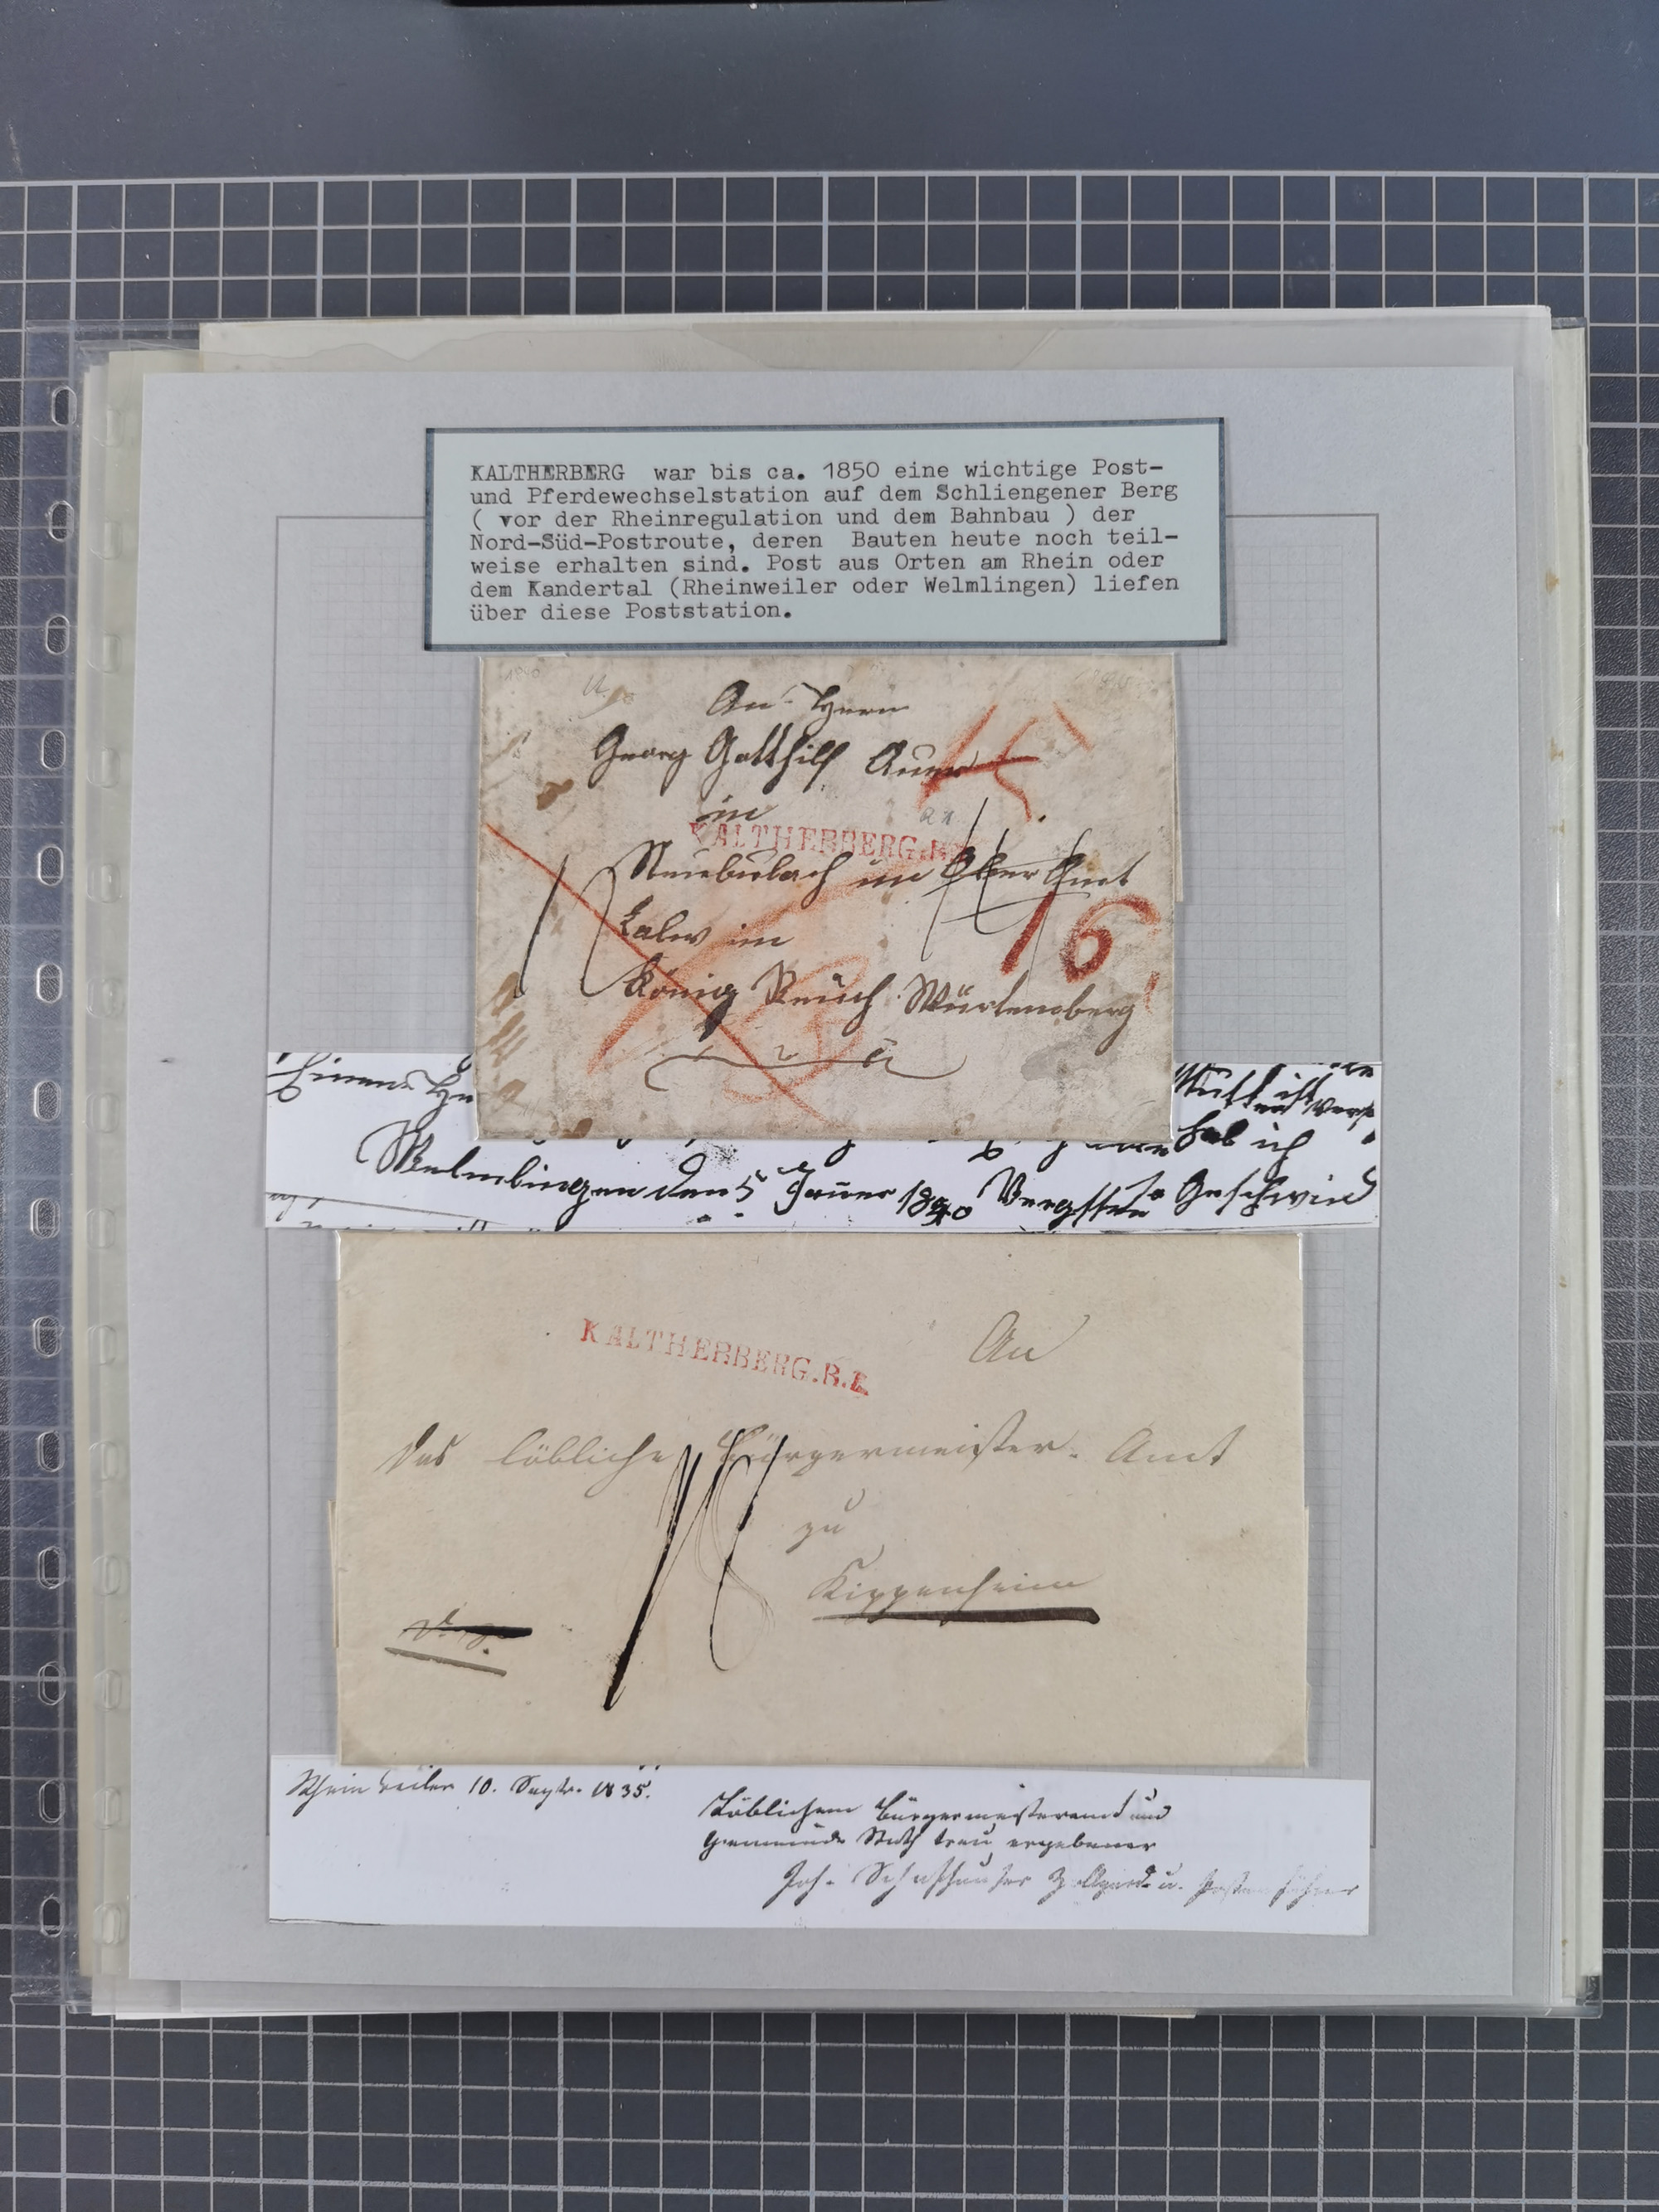 KALTHERBERG war bis ca. 1850 eine wichtige Post-
und Pferdewechselstation auf dem Schliengener Berg
( vor der Rheinregulation und dem Bahnbau ) der
Nord-Süd-Postroute, deren Bauten heute noch teil-
weise erhalten sind. Post aus Orten am Rhein oder
dem Kandertal (Rheinweiler oder Welmlingen) liefen
über diese Poststation.
An Herrn
Georg Gotthilf Auer
in
KALTHERBERG.R.
im Ober Amt
Calw im
16
König Reich Würtemberg
hab ich
Welmlingen den 5 Jäner 1840 Geschwind
KALTHERBERG.R.2.
An
das löbliche Bürgermeister-Amt
zu
Kippenheim
Rheinweiler 10. Septr. 1835.
Löblichem Bürgermeisteramt und
Gemeinde Rath treu ergebener
Joh.